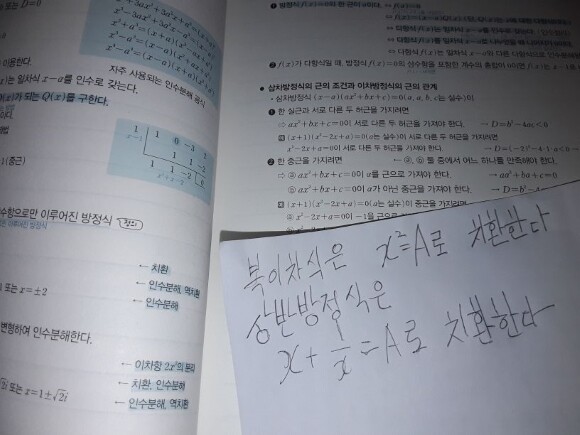 또는 D=0
x³+a³=(x+a)(x²-
x³-a³=(x-a)(x²
이용한다.
자주 사용되는 인수분해 공식
)는 일차식 x-a를 인수로 갖는다.
(x)가 되는 Q(x)를 구한다.
1 1 0 -3 2
x-1
1 1 -2
1 1 -2 0
1(중근)
수항으로만 이루어진 방정식
← 치환
← 인수분해, 역치환
또는 x=±2
← 인수분해
변형하여 인수분해한다.
← 치환, 인수분해
또는 x=1±√2i
← 인수분해, 역치환
❷ f(x)가 다항식일 때, 방정식 f(x)=0의
● 삼차방정식의 근의 조건과 이차방정식의 근의 관계
· 삼차방정식 (x-a)(ax²+bx+c)=0(a, a, b, c는 실수)이
❶ 한 실근과 서로 다른 두 허근을 가지려면
⇨ ax²+bx+c=0이 서로 다른 두 허근을 가져야 한다. → D=b²-4ac<0
(x+1)(x²-2x+a)=0(a는 실수)이 서로 다른 두 허근을 가지려면
x²-2x+a=0이 서로 다른 두 허근을 가져야 한다. → D=(-2)²-4·1·a<0
❷ 한 중근을 가지려면 ← ⓐ, ⓑ 둘 중에서 어느 하나를 만족해야 한다.
⇨ ⓐ ax²+bx+c=0이 a를 근으로 가져야 한다. → aa²+ba+c=0
ⓑ ax²+bx+c=0이 a가 아닌 중근을 가져야 한다. → D=b²-
(x+1)(x²-2x+a)=0(a는 실수)이 중근을 가지려면
ⓐ x²-2x+a=0이 -1을 근으로
복이차식은 x²=A로 치환한다
상반방정식은
x+1/x=A로 치환한다